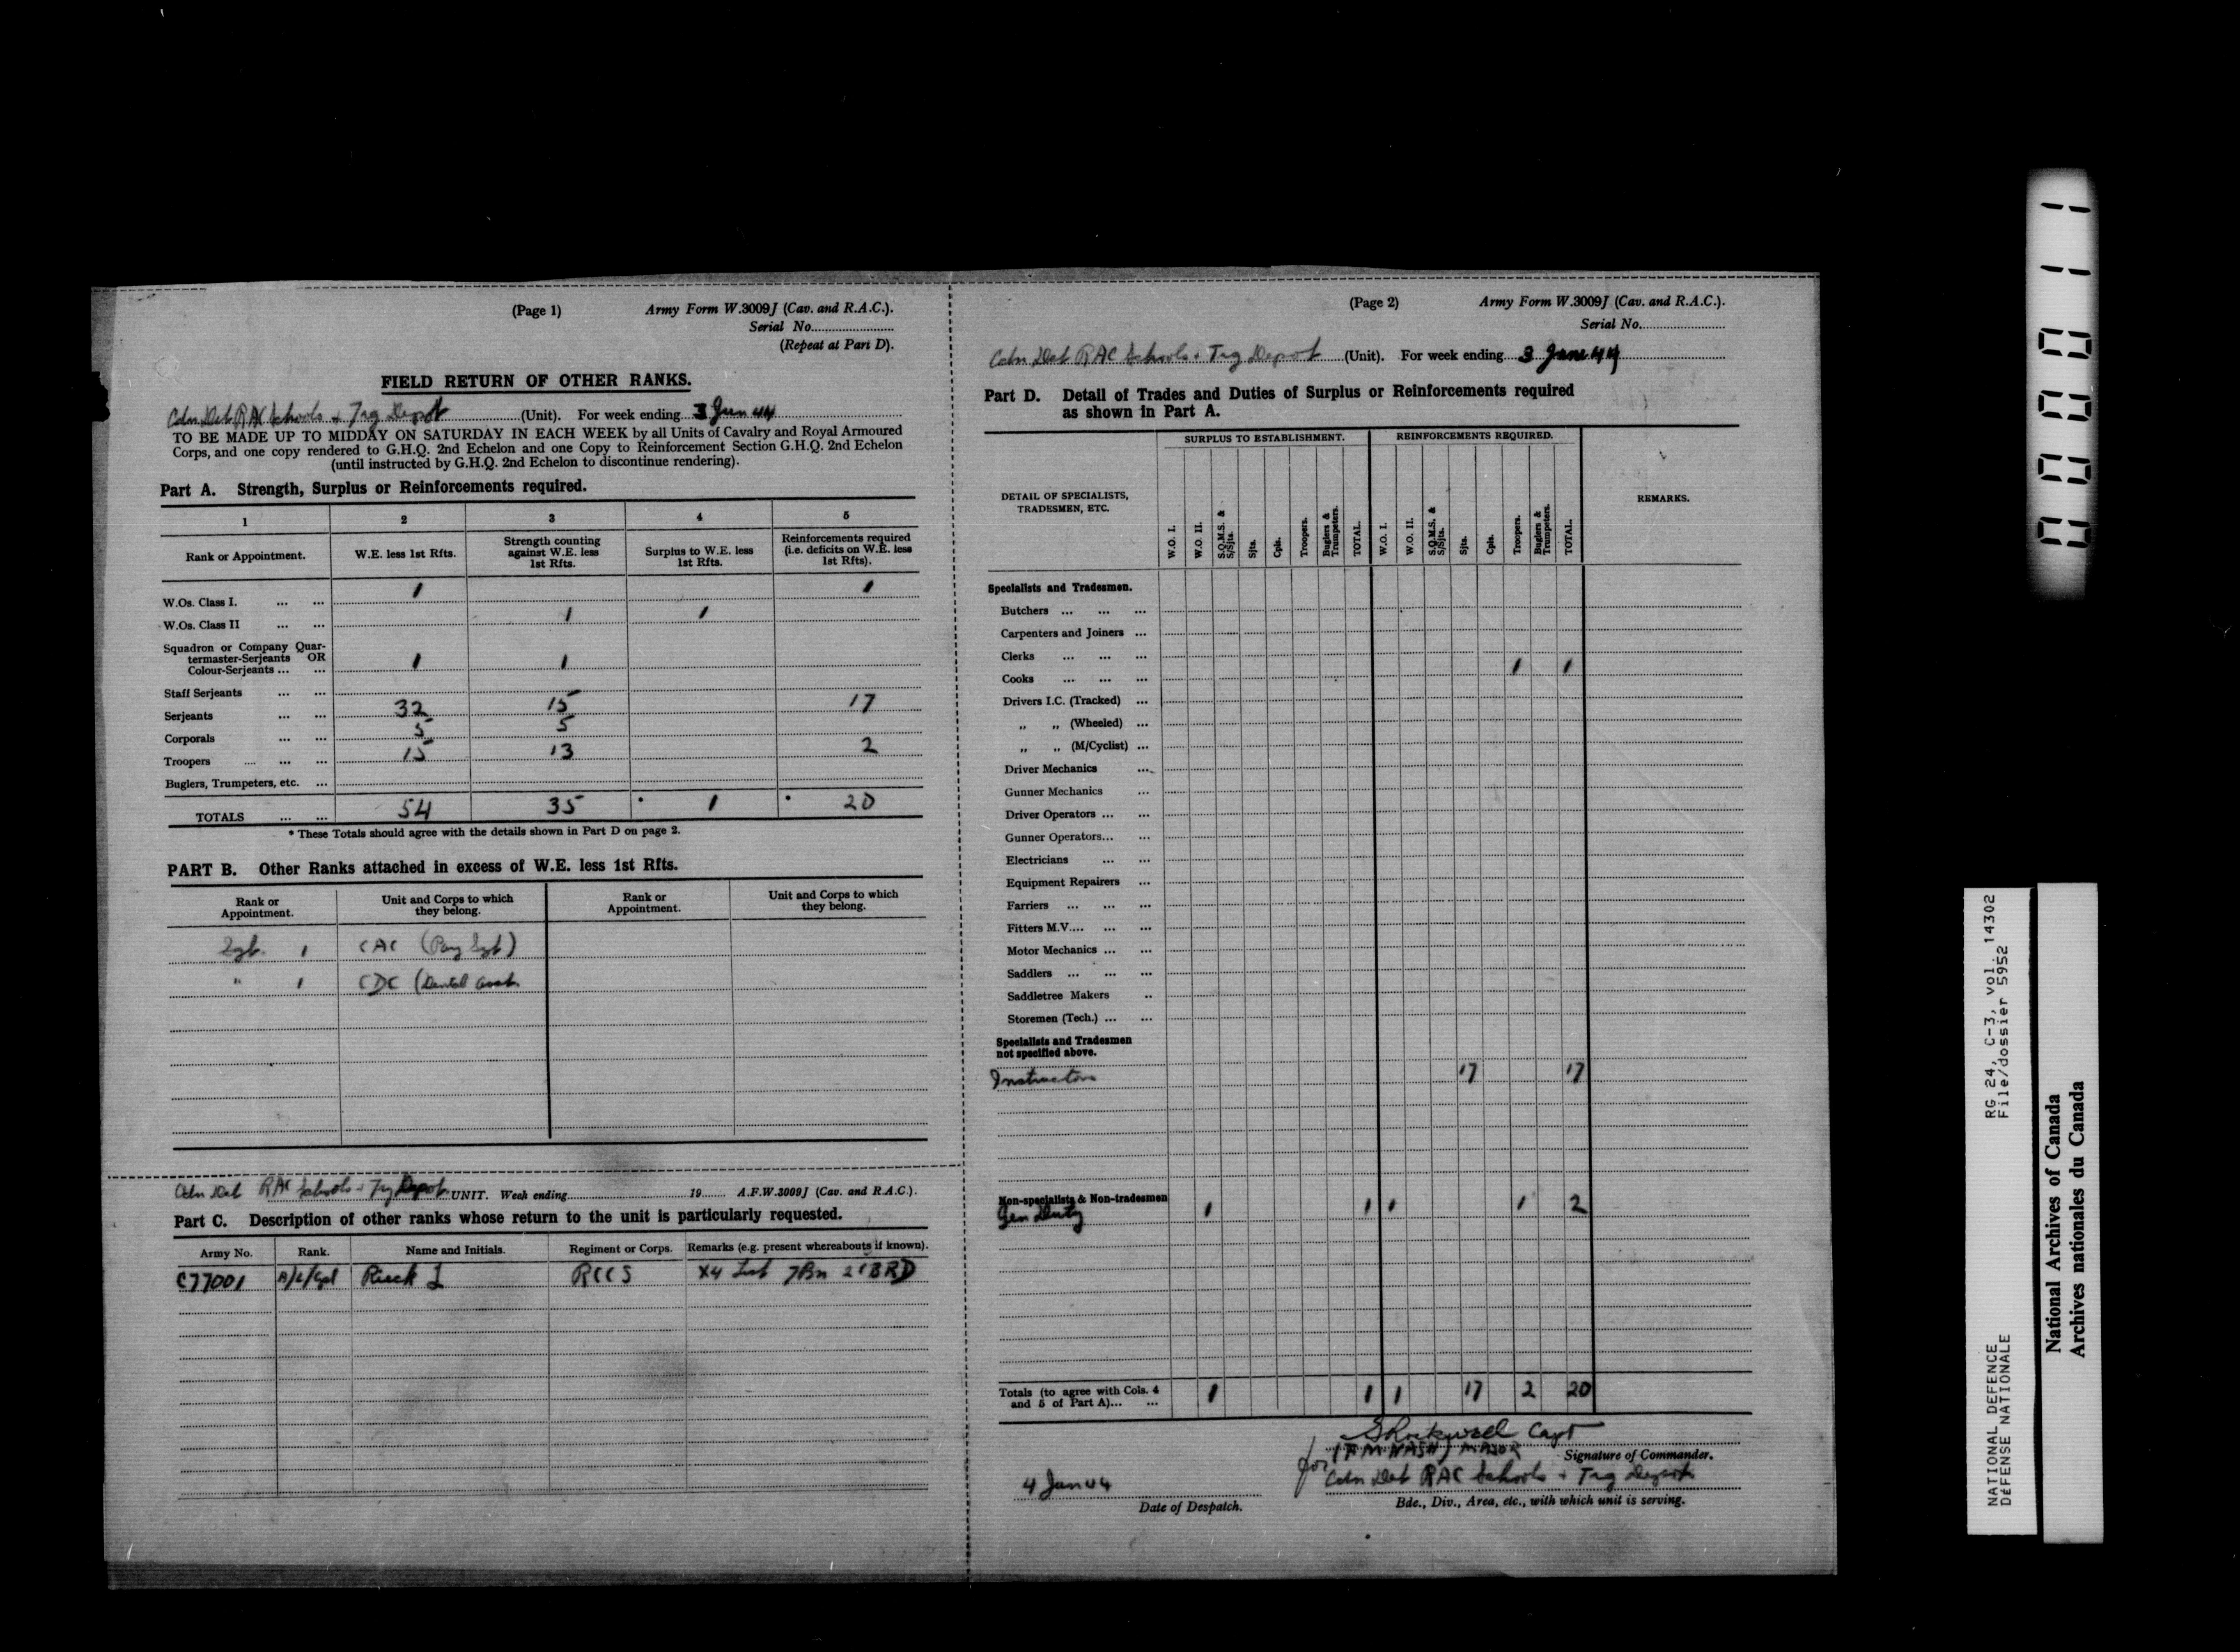 (Page 1) Army Form W.3009J (Cav. and R.A.C.).
Serial No.
(Repeat at Part D).
FIELD RETURN OF OTHER RANKS.
Cdn Det RAC Schools + Trg Depot (Unit). For week ending 3 Jun 44
TO BE MADE UP TO MIDDAY ON SATURDAY IN EACH WEEK by all Units of Cavalry and Royal Armoured
Corps, and one copy rendered to G.H.Q. 2nd Echelon and one Copy to Reinforcement Section G.H.Q. 2nd Echelon
(until instructed by G.H.Q. 2nd Echelon to discontinue rendering).
Part A. Strength, Surplus or Reinforcements required.
1 2 3 4 5
Rank or Appointment. W.E. less 1st Rfts. Strength counting against W.E. less 1st Rfts. Surplus to W.E. less 1st Rfts. Reinforcements required (i.e. deficits on W.E. less 1st Rfts).
W.Os. Class I. ... ... 1 1
W.Os. Class II ... ... 1 1
Squadron or Company Quar-
termaster-Serjeants OR
Colour-Serjeants ... ... 1 1
Staff Serjeants ... ...
Serjeants ... ... 32 15 17
Corporals ... ... 5 5
Troopers .... ... ... 15 13 2
Buglers, Trumpeters, etc. ...
TOTALS ... ... 54 35 * 1 * 20
* These Totals should agree with the details shown in Part D on page 2.
PART B. Other Ranks attached in excess of W.E. less 1st Rfts.
Rank or Appointment. Unit and Corps to which they belong. Rank or Appointment. Unit and Corps to which they belong.
Sgt. 1 CAC (Pay Sgt)
" 1 CDC (Dental Asst.
Cdn Det RAC Schools + Trg Depot UNIT. Week ending 19 A.F.W.3009J (Cav. and R.A.C.).
Part C. Description of other ranks whose return to the unit is particularly requested.
Army No. Rank. Name and Initials. Regiment or Corps. Remarks (e.g. present whereabouts if known).
C77001 A/L/Cpl RCCS X4 List 7Bn 2 CBRD
(Page 2) Army Form W.3009J (Cav. and R.A.C.).
Serial No.
Cdn Det RAC Schools + Trg Depot (Unit). For week ending 3 June 44
Part D. Detail of Trades and Duties of Surplus or Reinforcements required
as shown in Part A.
SURPLUS TO ESTABLISHMENT. REINFORCEMENTS REQUIRED.
DETAIL OF SPECIALISTS, TRADESMEN, ETC. W.O. I. W.O. II. S.Q.M.S. & S/Sjts. Sjts. Cpls. Troopers. Buglers & Trumpeters. TOTAL. W.O. I. W.O. II. S.Q.M.S. & S/Sjts. Sjts. Cpls. Troopers. Buglers & Trumpeters. TOTAL. REMARKS.
Specialists and Tradesmen.
Butchers ... ... ...
Carpenters and Joiners ...
Clerks ... ... ...
Cooks ... ... ... 1 1
Drivers I.C. (Tracked) ...
„ „ (Wheeled) ...
„ „ (M/Cyclist) ...
Driver Mechanics ...
Gunner Mechanics ...
Driver Operators ... ...
Gunner Operators... ...
Electricians ... ...
Equipment Repairers ...
Farriers ... ... ...
Fitters M.V.... ... ...
Motor Mechanics ... ...
Saddlers ... ... ...
Saddletree Makers ..
Storemen (Tech.) ... ...
Specialists and Tradesmen
not specified above.
Instructors 17 17
Non-specialists & Non-tradesmen
Gen Duty 1 1 1 1 2
Totals (to agree with Cols. 4
and 5 of Part A)... ... 1 1 1 17 2 20
Rockwell Capt
for (F M NASH) MAJOR Signature of Commander.
Cdn Det RAC Schools + Trg Depot
4 Jun 44
Date of Despatch. Bde., Div., Area, etc., with which unit is serving.
NATIONAL DEFENCE RG 24, C-3, vol. 14302
DÉFENSE NATIONALE File/dossier 5952
National Archives of Canada
Archives nationales du Canada